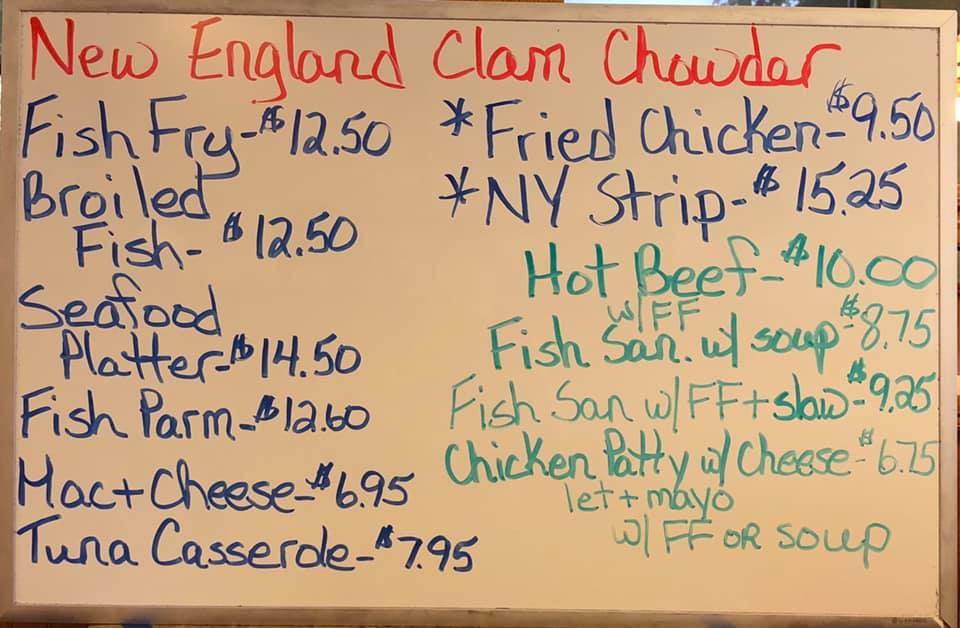 New England Clam Chowder
Fish Fry - $12.50
Broiled
Fish - $12.50
Seafood
Platter - $14.50
Fish Parm - $12.60
Mac + Cheese - $6.95
Tuna Casserole - $7.95
* Fried Chicken - $9.50
* NY Strip - $15.25
Hot Beef - $10.00
w/ FF
Fish San. w/ soup - $8.75
Fish San w/ FF + slaw - $9.25
Chicken Patty w/ Cheese - $6.75
let + mayo
w/ FF OR soup